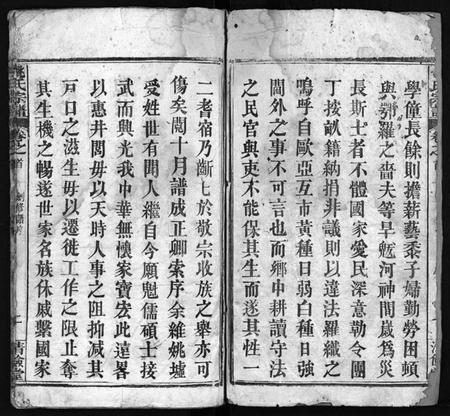 學僮長餘則擔薪藝黍子婦勤勞困頓
與鄂羅之嗇夫等早魃河神間歲爲災
長斯土者不體國家愛民深意勒令團
丁按畝籍納捐非議則以違法羅織之
嗚呼自歐亞互市黃種日弱白種日強
閫外之事不可言也而鄉中耕讀守法
之民官與吏不能保其生而遂其性一
二耆宿乃斷七於敬宗收族之舉亦可
傷矣閱十月譜成正卿索序余維姚墟
受姓世有聞人繼自今願魁儒碩士接
武而興光我中華無懷家寶去此遠畧
以惠井閭毋以天時人事之阻抑減其
戸口之滋生毋以遷徙工作之限止奪
其生機之暢遂世家名族休戚繫國家
氏宗譜
卷之首